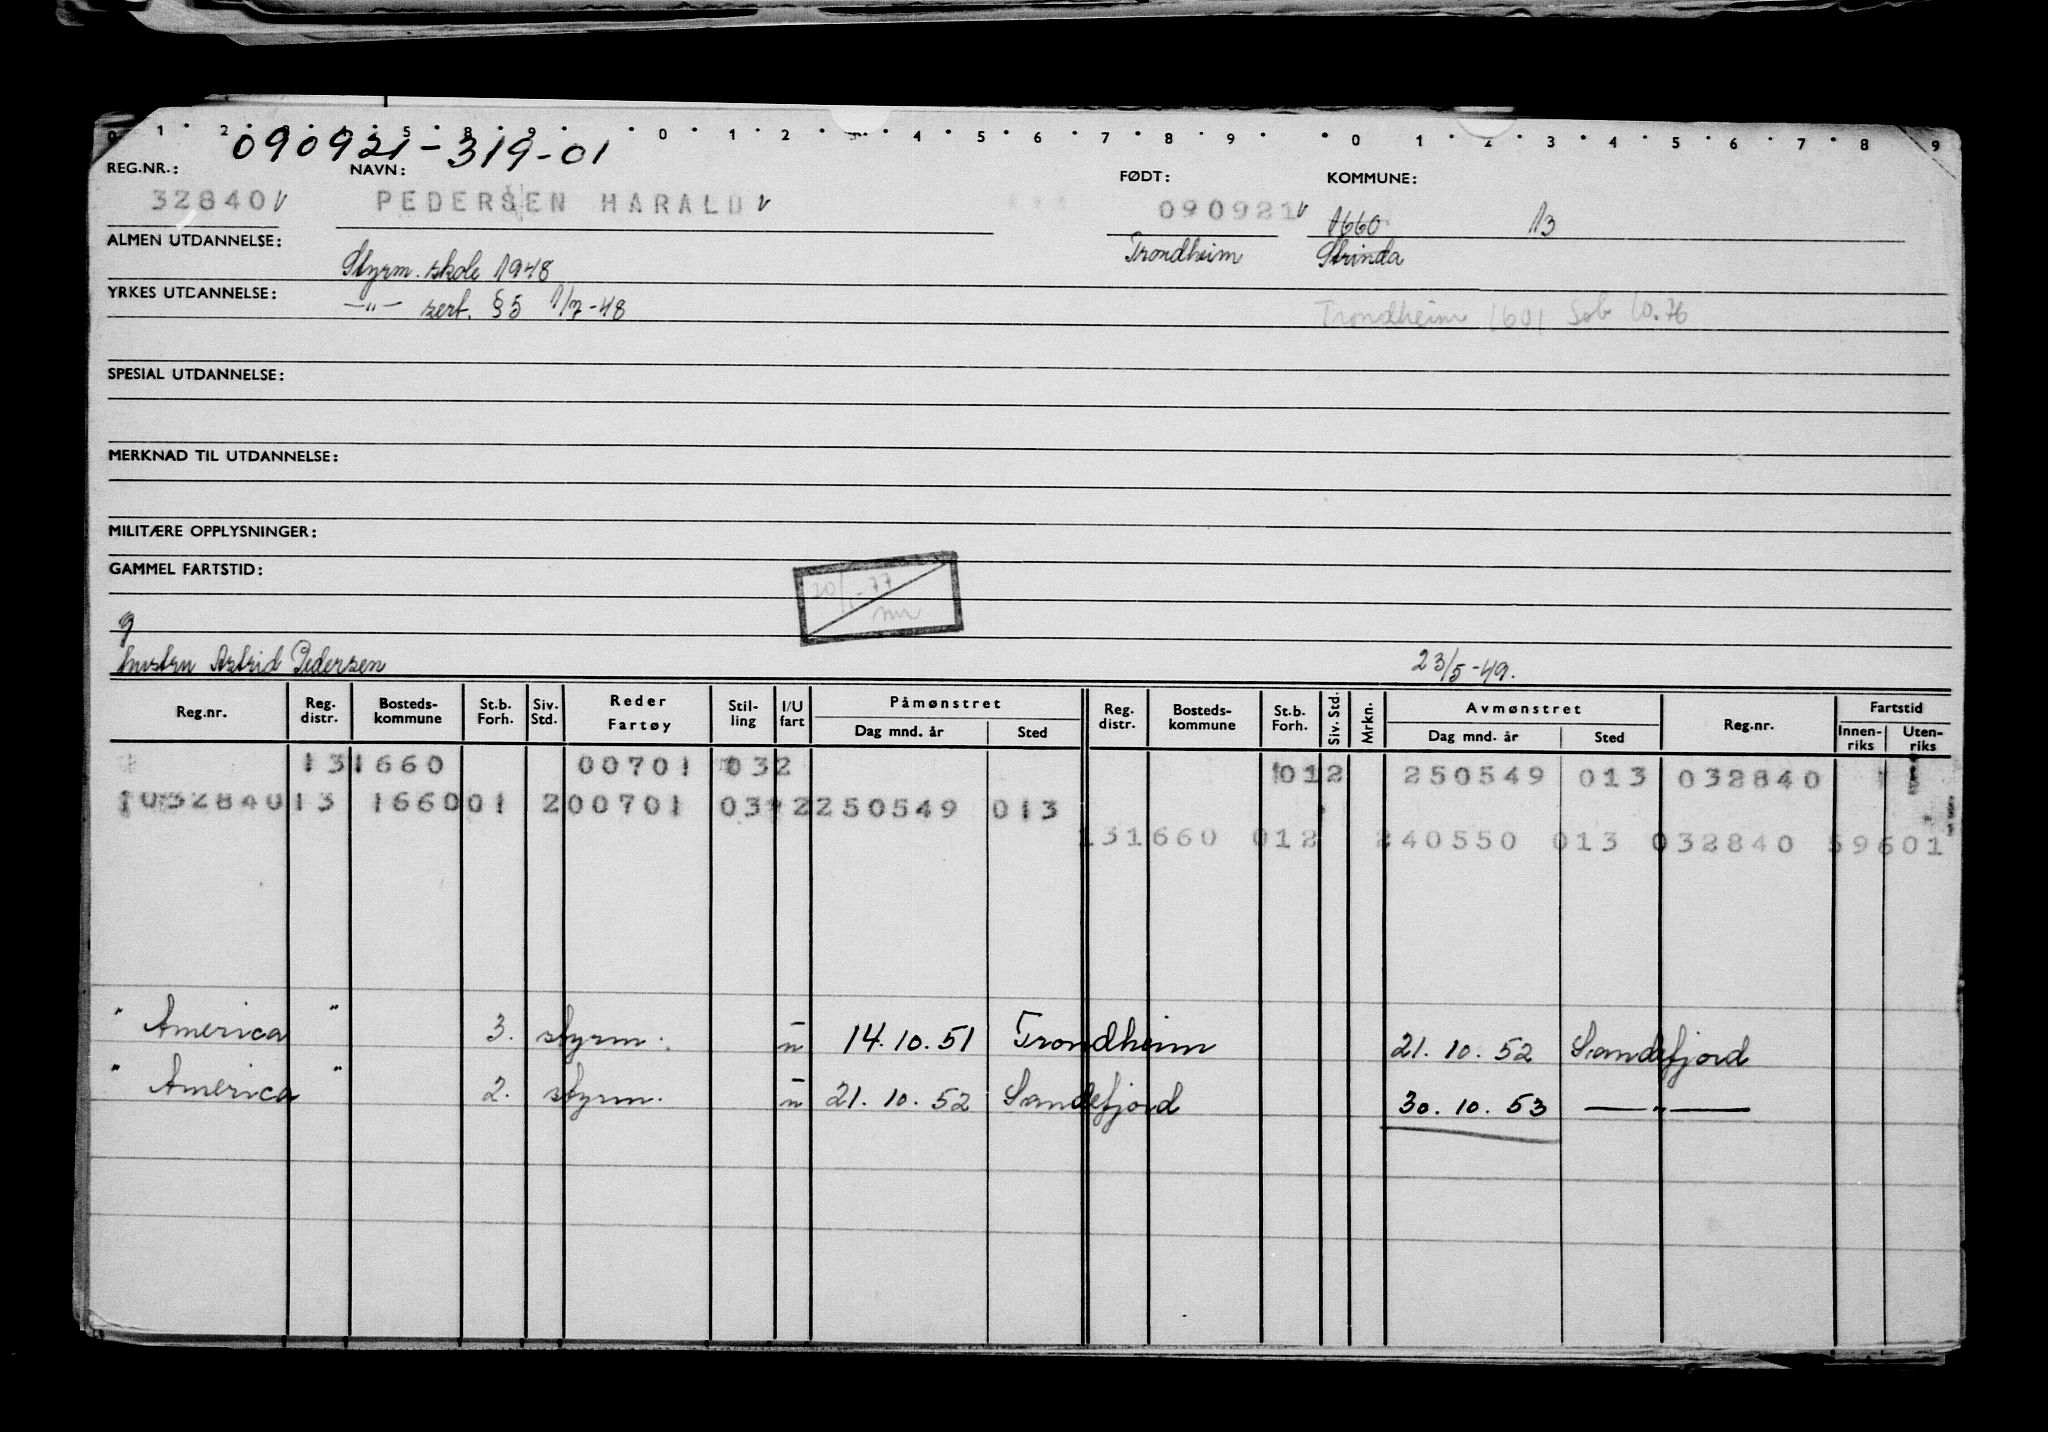 0 1 2 3 4 5 8 9 0 1 2 3 4 5 6 7 8 9 0 1 2 3 4 5 6 7 8 9
090921-319-01
REG.NR.: NAVN: FØDT: KOMMUNE:
32840 PEDERSEN HARALD 090921 1660 13
ALMEN UTDANNELSE: Styrm. skole 1948 Trondheim Strinda
YRKES UTDANNELSE: —"— sert. §5 1/7-48 Trondheim 1601 10.76
SPESIAL UTDANNELSE:
MERKNAD TIL UTDANNELSE:
MILITÆRE OPPLYSNINGER:
GAMMEL FARTSTID:
20/1-77
g
hustru Astrid Pedersen 23/5-49.
Reg.nr. Reg. distr. Bosteds-kommune St.b. Forh. Siv. Std. Reder Fartøy Stil-ling I/U fart Påmønstret Dag mnd. år Sted Reg. distr. Bosteds-kommune St.b. Forh. Siv. Std. Mrkn. Avmønstret Dag mnd. år Sted Reg.nr. Fartstid Innen-riks Uten-riks
131660 00701 032 1012 250549 013 032840
1032840 13 166001 200701 03 2250549 013
131660 012 240550 013 032840 59601
" America " 3. styrm. u 14.10.51 Trondheim 21.10.52 Sandefjord
" America " 2. styrm. u 21.10.52 Sandefjord 30.10.53 —"—